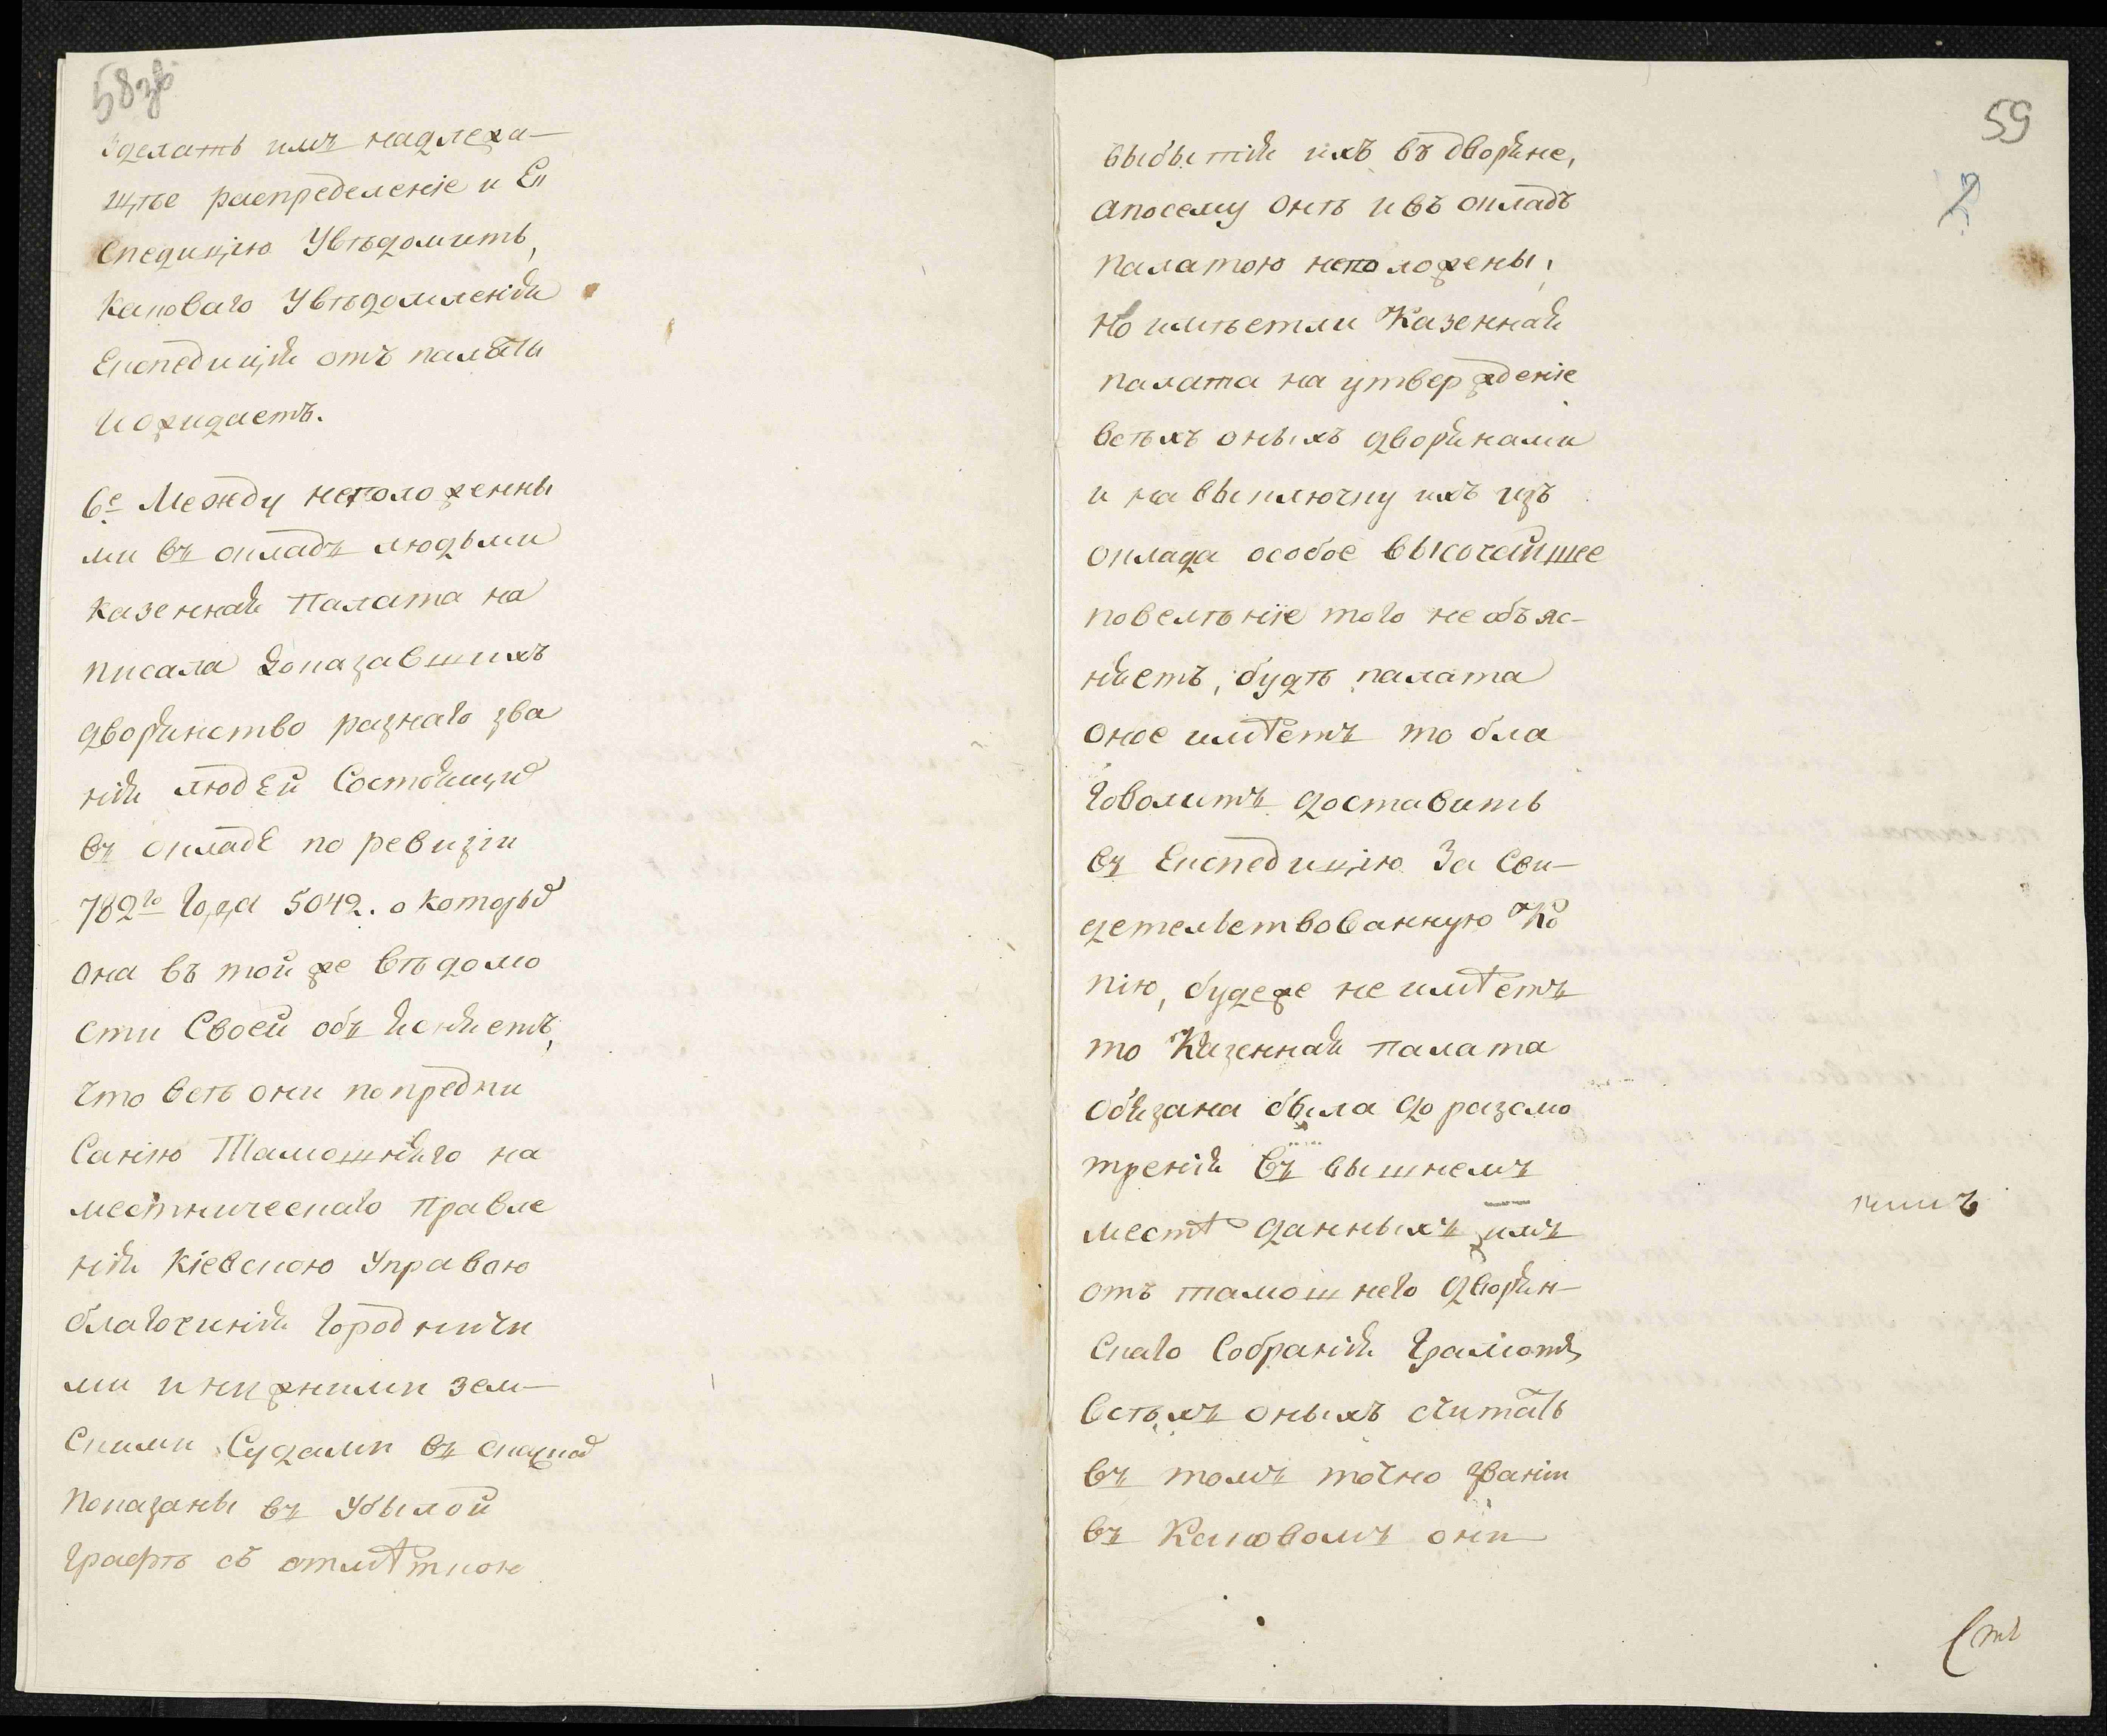 58 зв
зделать имъ надлежа-
щѣе распределеніе и Ек
спедицію Увѣдомить,
Каковаго Увѣдомленія
Експедиція отъ палаты
и ожидаетъ.
6е Между неположенны
ми въ окладъ людьми
Казенная Палата на
писала доказавшихъ
дворянство разнаго зва
нія людей Состоящих
въ окладе по ревизіи
782го Года 5042. о которых
она въ той же вѣдомо
сти Своей объясняетъ,
что всѣ они по предпи
Санію Тамошняго на
местническаго Правле
нія Кіевскою Управою
благочинія Городничи
ми и нижними зем-
Скими Судами въ сказках
показаны въ Убылой
графѣ съ отмѣткою
59
2
выбытія ихъ въ дворяне,
а посему онѣ и въ окладъ
палатою неположены,
но имѣетли Казенная
палата на утвержденіе
всѣхъ оныхъ дворянами
и на выключку ихъ изъ
оклада особое высочайшее
повелѣніе того не объяс-
няетъ, будѣ палата
оное имѣетъ то бла
Говолитъ доставить
въ Експедицію За Сви-
детельствованную Ко
пію, буде же не имѣетъ
то Казенная палата
обязана была до разсмо
тренія въ вышнемъ
местѣ данныхъ имъ
отъ тамошнего дворян-
Скаго Собранія Грамотъ
всѣхъ оныхъ считать
въ томъ точно званіи
въ Каковомъ они
Сть